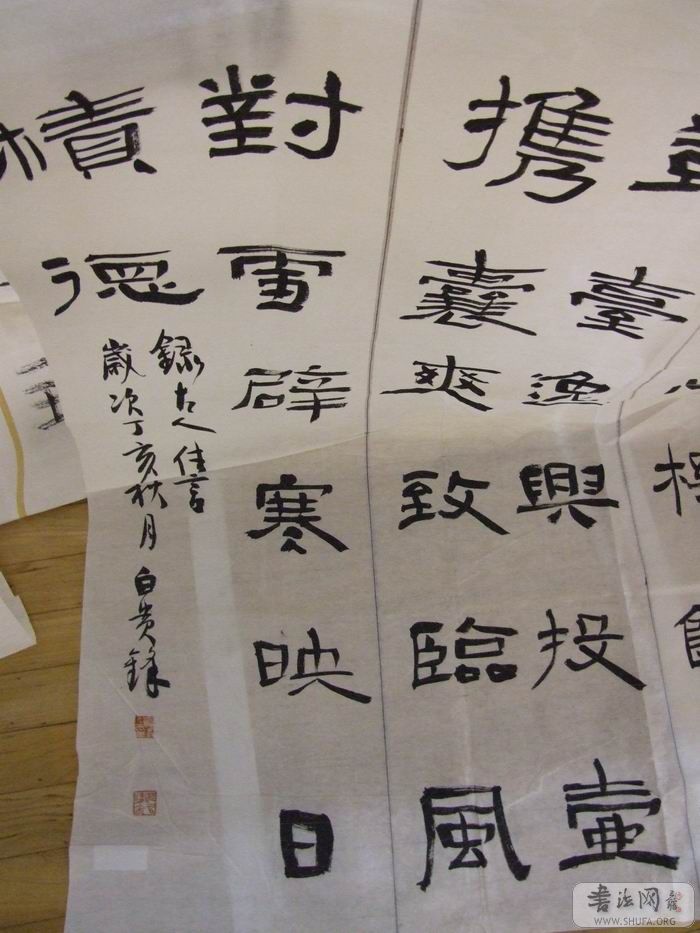 臺逸興投壺
携囊爽致臨風
對雪辟寒映日
積德
錄古人佳言
歲次丁亥秋月 白貴鋒
书法网
WWW.SHUFA.ORG